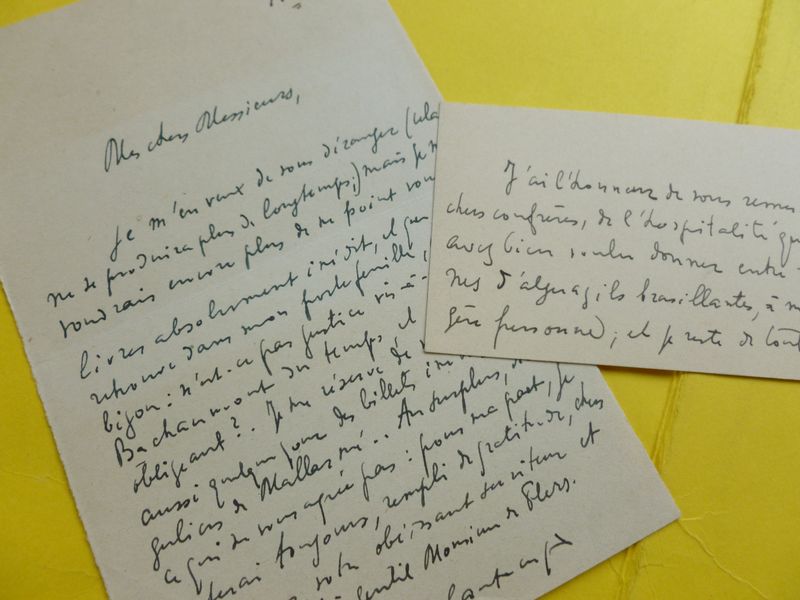 Mes chers Messieurs,
Je m'en veux de vous déranger (cela
ne se produira plus de longtemps;) mais je m'
voudrais encore plus de ne point vous
livrer absolument inédit, et que
retrouve dans mon portefeuille,
bijou: n'est-ce pas justice vis-à-
Bachaumont du temps et
obligeant?.. Je me réserve de
aussi quelque jour des billets
guliers de Mallarmé.. Au surplus,
ce qui ne vous agrée pas: pour ma part, je
serai toujours, rempli de gratitude, chers
votre obéissant serviteur et
Gentil Monsieur de Flers.
J'ai l'honneur de vous remer
chers confrères, de l'hospitalité que
avez bien voulu donner entre
nes d'alguazils brasillantes, à m
gère personne; et je reste de tout